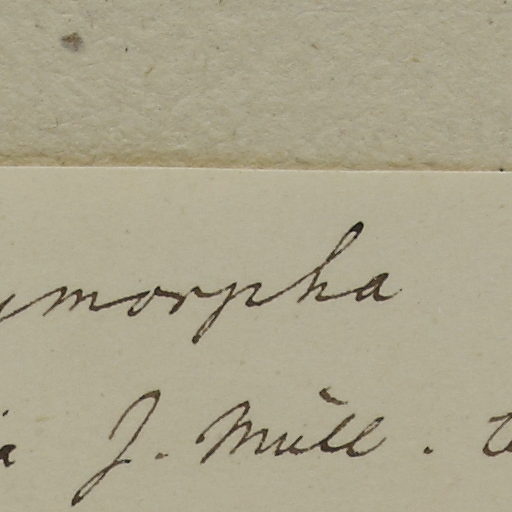 ymorpha
a J. Müll. t